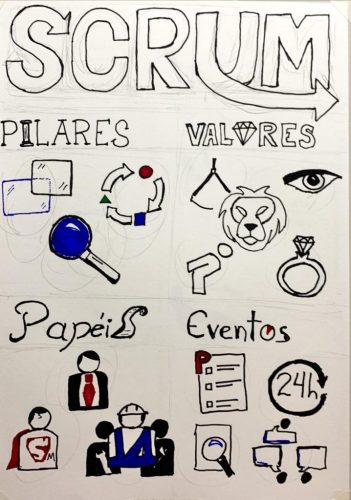 SCRUM
PILARES
VALORES
Papéis
Eventos
P
24h
S
M